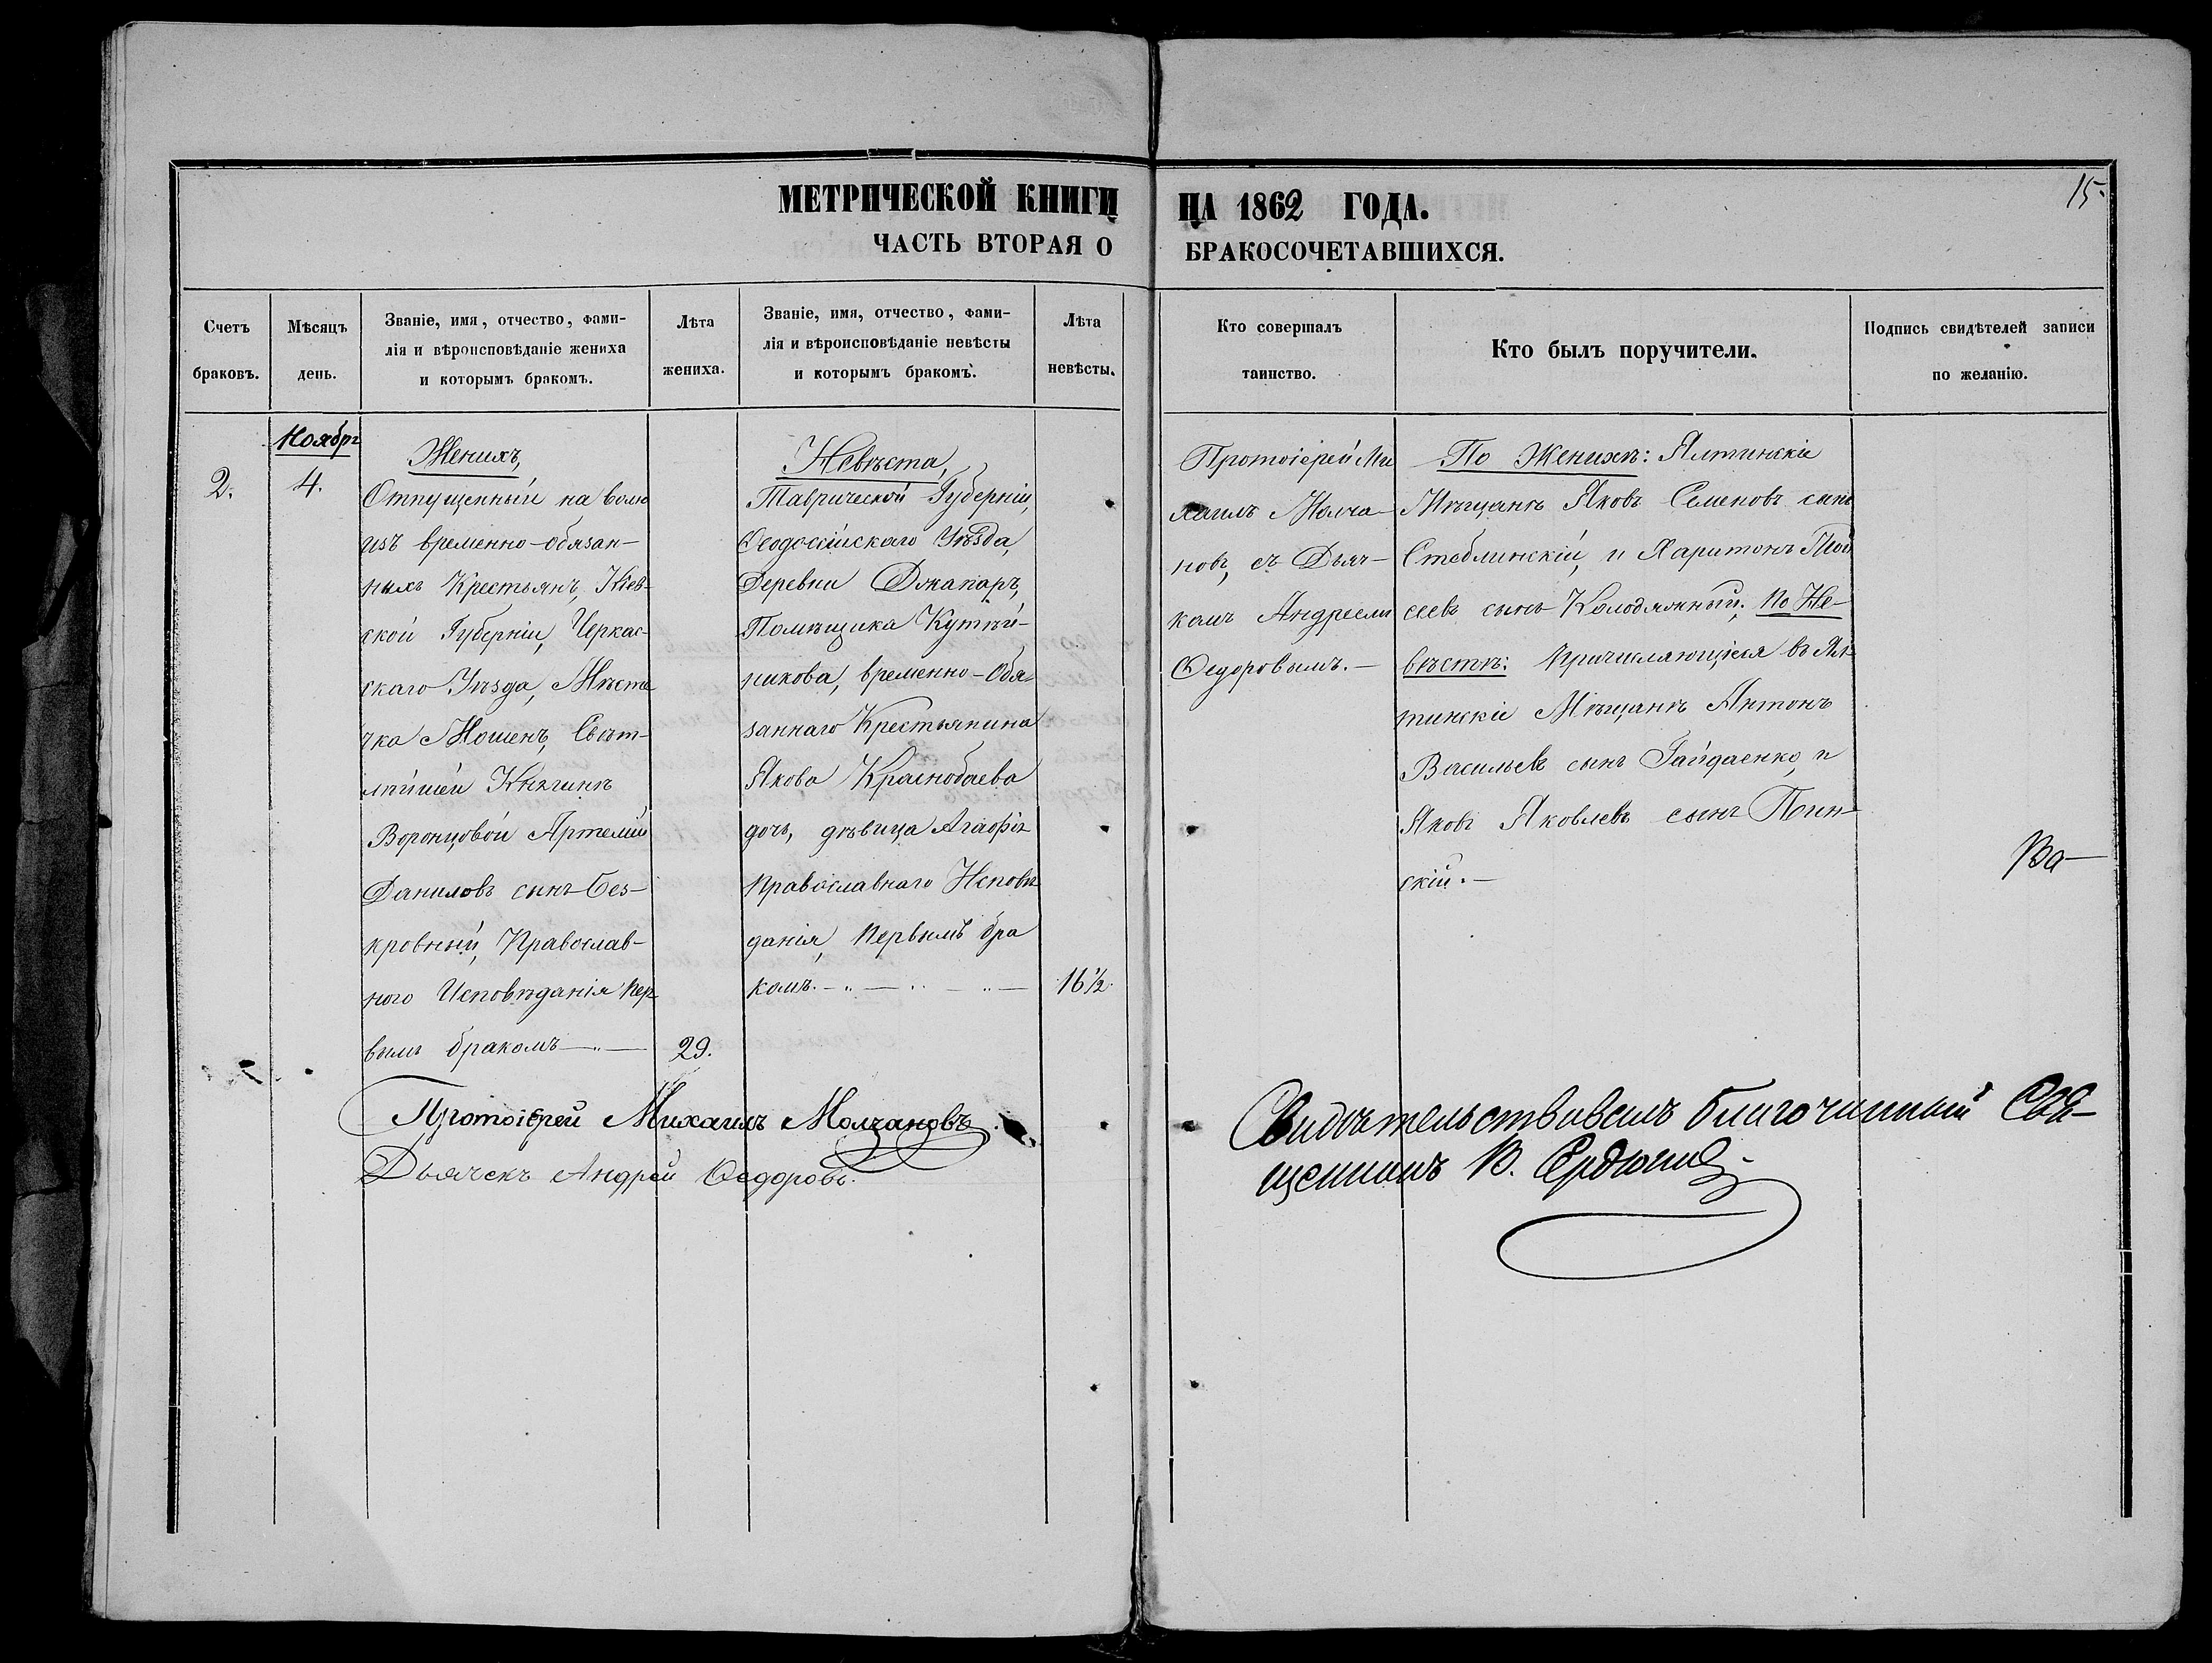 15.
МЕТРИЧЕСКОЙ КНИГИ НА 1862 ГОДА.
ЧАСТЬ ВТОРАЯ О БРАКОСОЧЕТАВШИХСЯ.
Счетъ
браковъ.
Мѣсяцъ
день.
Званіе, имя, отчество, фами-
лія и вѣроисповѣданіе жениха
и которымъ бракомъ.
Лѣта
жениха.
Званіе, имя, отчество, фами-
лія и вѣроисповѣданіе невѣсты
и которымъ бракомъ.
Лѣта
невѣсты.
Кто совершалъ
таинство.
Кто былъ поручители.
Подпись свидѣтелей записи
по желанію.
2.
Ноябрь
4.
Женихъ,
Отпущенный на волю
изъ временно-обязан-
ныхъ Крестьянъ, Кіев-
ской Губерніи, Черкас-
скаго Уѣзда, Мѣсте
чка Мошенъ, Свѣт-
лѣйшей Княгинѣ
Воронцовой Артемій
Даниловъ сынъ Без-
кровный, Православ-
ного Исповѣданія пер
вымъ бракомъ
29.
Невѣста,
Таврической Губерніи,
Ѳеодосійскаго Уѣзда,
Деревни Джапаръ,
Помѣщика Кутѣй-
никова, временно-Обя-
заннаго Крестьянина
Якова Краснобаева
дочь, дѣвица Агафія
Православнаго Исповѣ
данія, первымъ бра
комъ.
16½.
Протоіерей Ми
хаилъ Молча-
новъ, съ Дьяч-
комъ Андреемъ
Ѳедоровымъ.
По Женихѣ: Ялтинскіе
Мѣщанѣ Яковъ Семеновъ сынъ
Стеблинскій, и Харитонъ Мои
сеевъ сынъ Колодяжный; по Не-
вѣстѣ: причисляющіеся въ Ял-
тинскіе Мѣщанѣ Антонъ
Васильевъ сынъ Гайдаенко, и
Яковъ Яковлевъ сынъ Пин-
скій.
Ва-
Протоіерей Михаилъ Молчановъ
Дьячекъ Андрей Ѳедоровъ.
Свидѣтельствовалъ благочинный Свя-
щенникъ В.